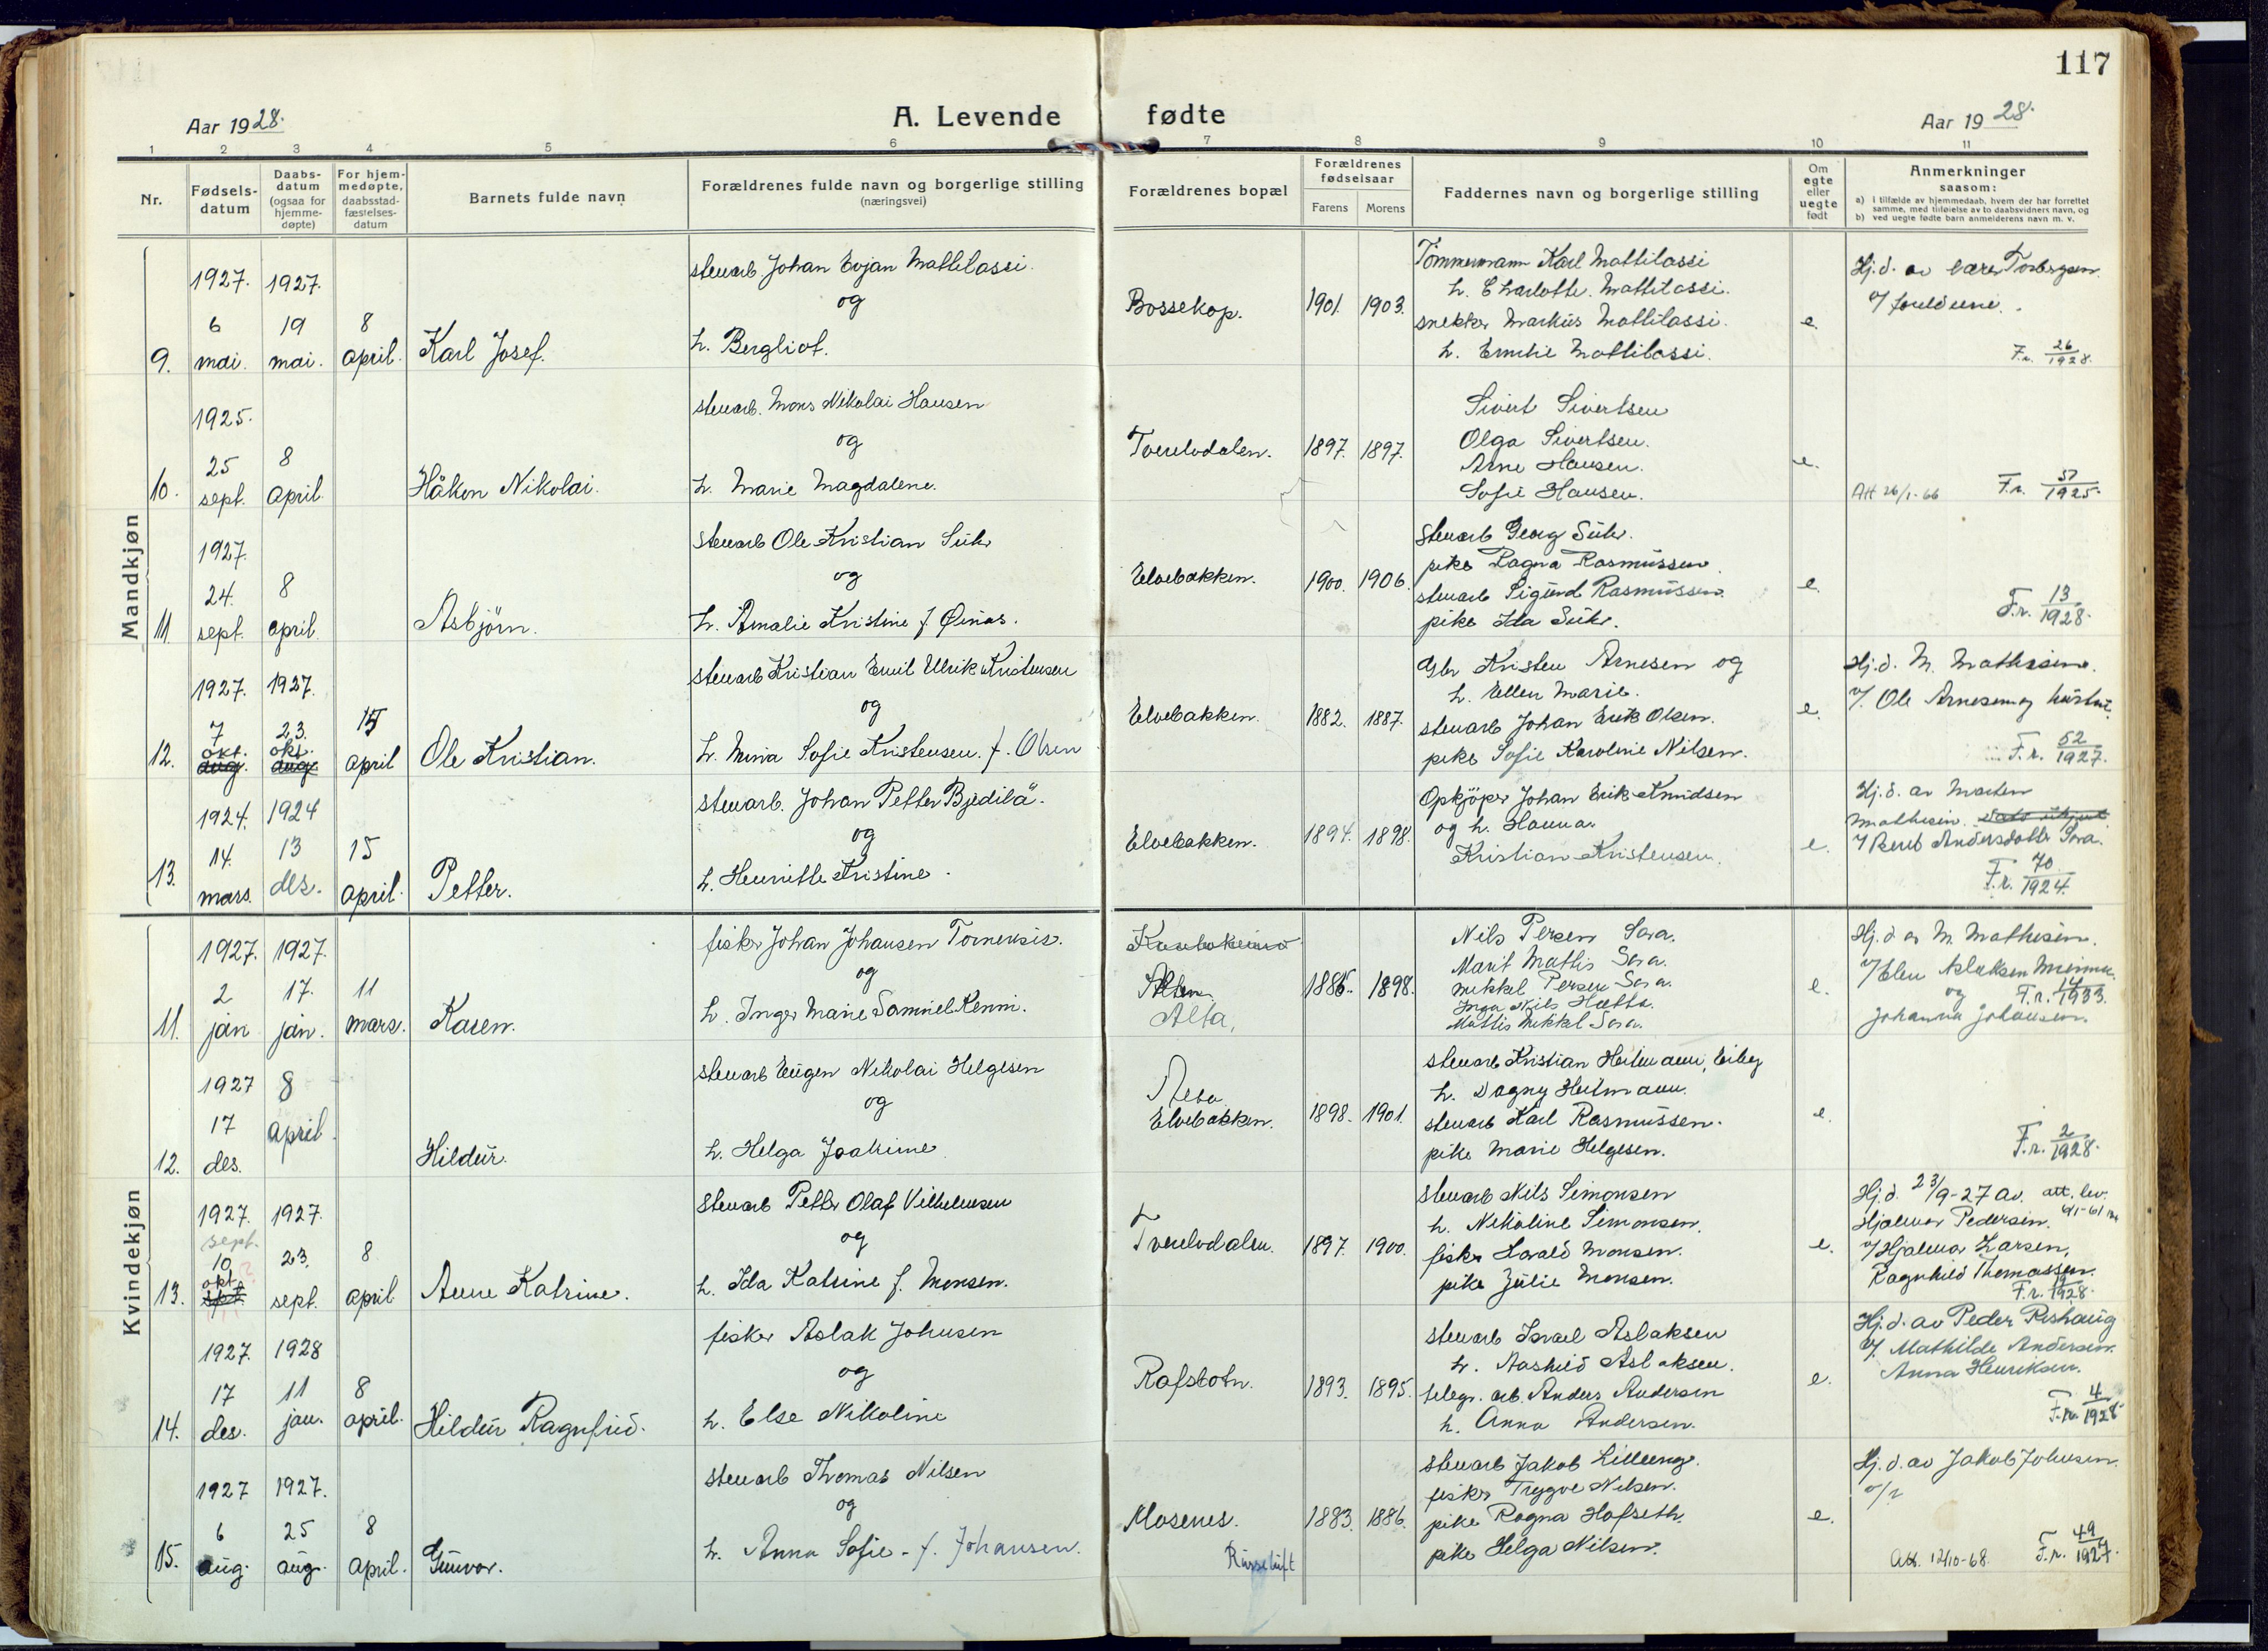 117
Aar 1928.
A. Levende fødte
Aar 1928.
1 2 3 4 5 6 7 8 9 10 11
Nr.
Fødsels-
datum
Daabs-
datum
(ogsaa for
hjemme-
døpte)
For hjem-
medøpte,
daabsstad-
fæstelses-
datum
Barnets fulde navn
Forældrenes fulde navn og borgerlige stilling
(næringsvei)
Forældrenes bopæl
Forældrenes
fødselsaar
Farens Morens
Faddernes navn og borgerlige stilling
Om
egte
eller
uegte
født
Anmerkninger
saasom:
a) i tilfælde av hjemmedaab, hvem der har forrettet
samme, med tilføielse av to daabsvidners navn, og
b) ved uegte fødte barn anmelderens navn m. v.
Mandkjøn
9.
1927.
6
mai.
1927.
19
mai.
8
april.
Karl Josef.
stenarb Johan Evjan Mattilassi.
og
h. Bergliot.
Bossekop.
1901. 1903.
Tömmermann Karl Mattilassi
h. Charlotte. Mattilassi.
snekker Markus Mattilassi.
h. Emilie Mattilassi.
e.
Hj.d. av lærer Torbergsen
v/ foreldrene.
F.r. 26/1928.
10.
1925.
25
sept.
8
april.
Håkon Nikolai.
stenarb. Mons Nikolai Hansen
og
h. Marie Magdalene.
Tverelvdalen.
1897. 1897.
Sivert Sivertsen
Olga Sivertsen.
Arne Hansen.
Sofie Hansen.
e.
Att 26/1-66
F.r. 51/1925.
11.
1927.
24.
sept.
8
april.
Asbjörn.
stenarb Ole Kristian Suhr
og
h. Amalie Kristine f. Øinas.
Elvebakken.
1900. 1906.
Stenarb Georg Suhr.
pike Ragna Rasmussen.
stenarb Sigurd Rasmussen.
pike Ida Suhr.
e.
F.r. 13/1928.
12.
1927.
7
okt.
aug.
1927.
23.
okt.
aug.
15
april
Ole Kristian.
stenarb Kristian Emil Ulrik Kristensen
og
h. Mina Sofie Kristensen. f. Olsen
Elvebakken.
1882. 1887.
Gbr Kristen Arnesen og
h. Ellen Marie.
stenarb Johan Erik Olsen.
pike Sofie Karoline Nilsen.
e.
Hj.d. M. Mathisen.
v/. Ole Arnesen og hustru.
F.r. 52/1927.
13.
1924.
14.
mars.
1924
13
des.
15
april.
Petter.
stenarb. Johan Petter Bjedilä.
og
h. Henritte Kristine.
Elvebakken.
1894. 1898.
Opkjöper Johan Erik Knudsen
og h. Hanna.
Kristian Kristensen.
e.
Hj.d. av Marten
Mathisen.
v/ Berit Andersdatter Sara.
F.r. 70/1924.
Kvindekjøn
11.
1927.
2
jan
1927.
17.
jan.
11
mars.
Karen.
fisker Johan Johansen Tornensis.
og
h. Inger Marie Samuel Kemi.
Kautokeino
Alten.
Alta,
1885. 1898.
Nils Persen Sara.
Marit Mattis Sara.
Mikkel Persen Sara.
Inga Nils Hætta.
Mattis Mikkel Sara.
e.
Hj.d av M. Mathisen.
v/ Elen Aslaksen
og F.r. 14/1933.
Johanna Johansen.
12.
1927
17
des.
8
april.
Hildur.
stenarb Eugen Nikolai Helgesen
og
h. Helga Joakime.
Elvebakken.
1898. 1901.
stenarb Kristian Heitmann,
h. Dagny Heitmann.
stenarb Karl Rasmussen.
pike Marie Helgesen.
e.
F.r. 2/1928.
13.
1927.
sept.
10
okt.
sept
1927.
23.
sept.
8
april
Anne Katrine.
stenarb Petter Olaf Vilhelmsen
og
h. Ida Katrine f. Monsen.
Tverelvdalen.
1897. 1900.
stenarb Nils Simonsen
h. Nikoline Simonsen.
fisker Harald Monsen.
pike Julie Monsen.
e.
Hj.d. 23/9-27 av. att. lev.
Hjalmar Pedersen. 6/1-61
v/ Hjalmar Larsen,
Ragnhild Thomassen.
F.r. 19/1928.
14.
1927.
17
des.
1928
11
jan.
8
april.
Hildur Ragnfrid.
fisker Aslak Johnsen
og
h. Else Nikoline
Rafsbotn.
1893. 1895.
stenarb Israel Aslaksen
h. Aashild Aslaksen.
telegr. arb. Anders Andersen
h. Anna Andersen.
e.
Hj.d. av Peder Reshaug
v/. Mathilde Andersen.
Anna Henriksen.
F.r. 4/1928.
15.
1927
6
aug.
1927.
25
aug.
8
april.
Gunvor.
stenarb Thomas Nilsen
og
h. Anna Sofie - f. Johansen.
Mosenes.
Russeluft
1883. 1886.
stenarb Jakob Lilleeng.
fisker Trygve Nilsen.
pike Ragna Hofseth.
pike Helga Nilsen.
e.
Hj.d. av Jakob Johnsen.
Att. 12/10-68. F.r. 49/1927.